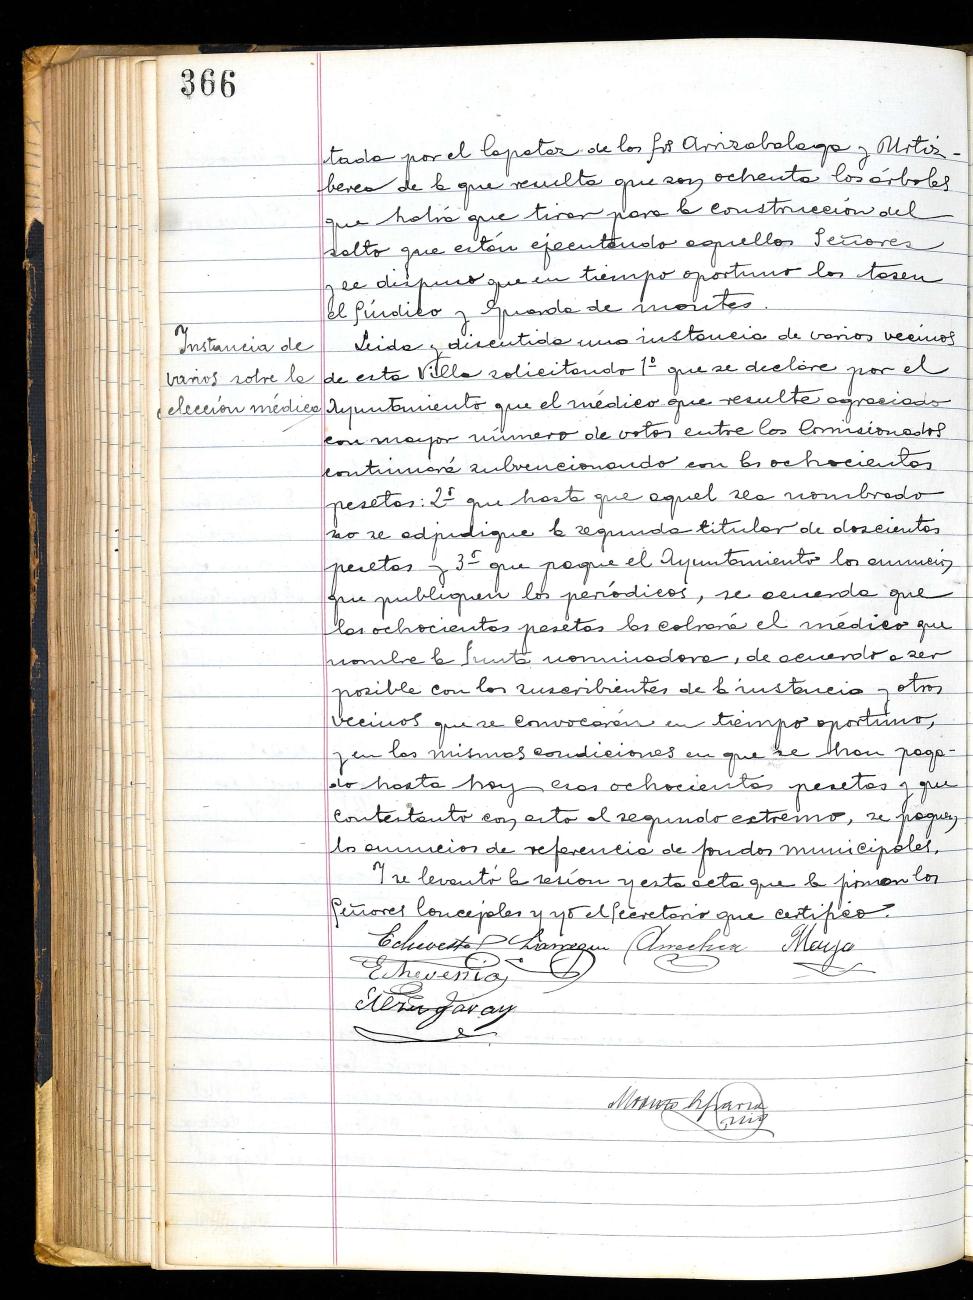 366
tada por el Capataz de los Srs Arrizabalaga y Urtiz-
berea de la que resulta que son ochenta los árboles
que habrá que tirar para la construcción del
salto que están ejecutando aquellos Señores
y se dispuso que en tiempo oportuno los tasen
el Síndico y Guarda de montes.
Instancia de
varios sobre la
elección médico
Leida y discutida una instancia de varios vecinos
de esta Villa solicitando 1º que se declare por el
Ayuntamiento que el médico que resulte agraciado
con mayor número de votos entre los Comisionados
continuará subvencionando con las ochocientas
pesetas: 2º que hasta que aquel sea nombrado
no se adjudique la segunda titular de doscientas
pesetas y 3º que pague el Ayuntamiento los anuncios
que publiquen los periódicos, se acuerda que
las ochocientas pesetas las cobrará el médico que
nombre la Junta nominadora, de acuerdo a ser
posible con los suscribientes de la instancia y otros
vecinos que se convocarán en tiempo oportuno,
y en las mismas condiciones en que se han paga-
do hasta hoy esas ochocientas pesetas y que
contestanto con esto al segundo extremo, se paguen
los anuncios de referencia de fondos municipales.
Y se levantó la sesión y esta acta que la firman los
Señores Concejales y yó el Secretario que certifico.
Echeverria Larregui Arrechea Maya
Echeverria